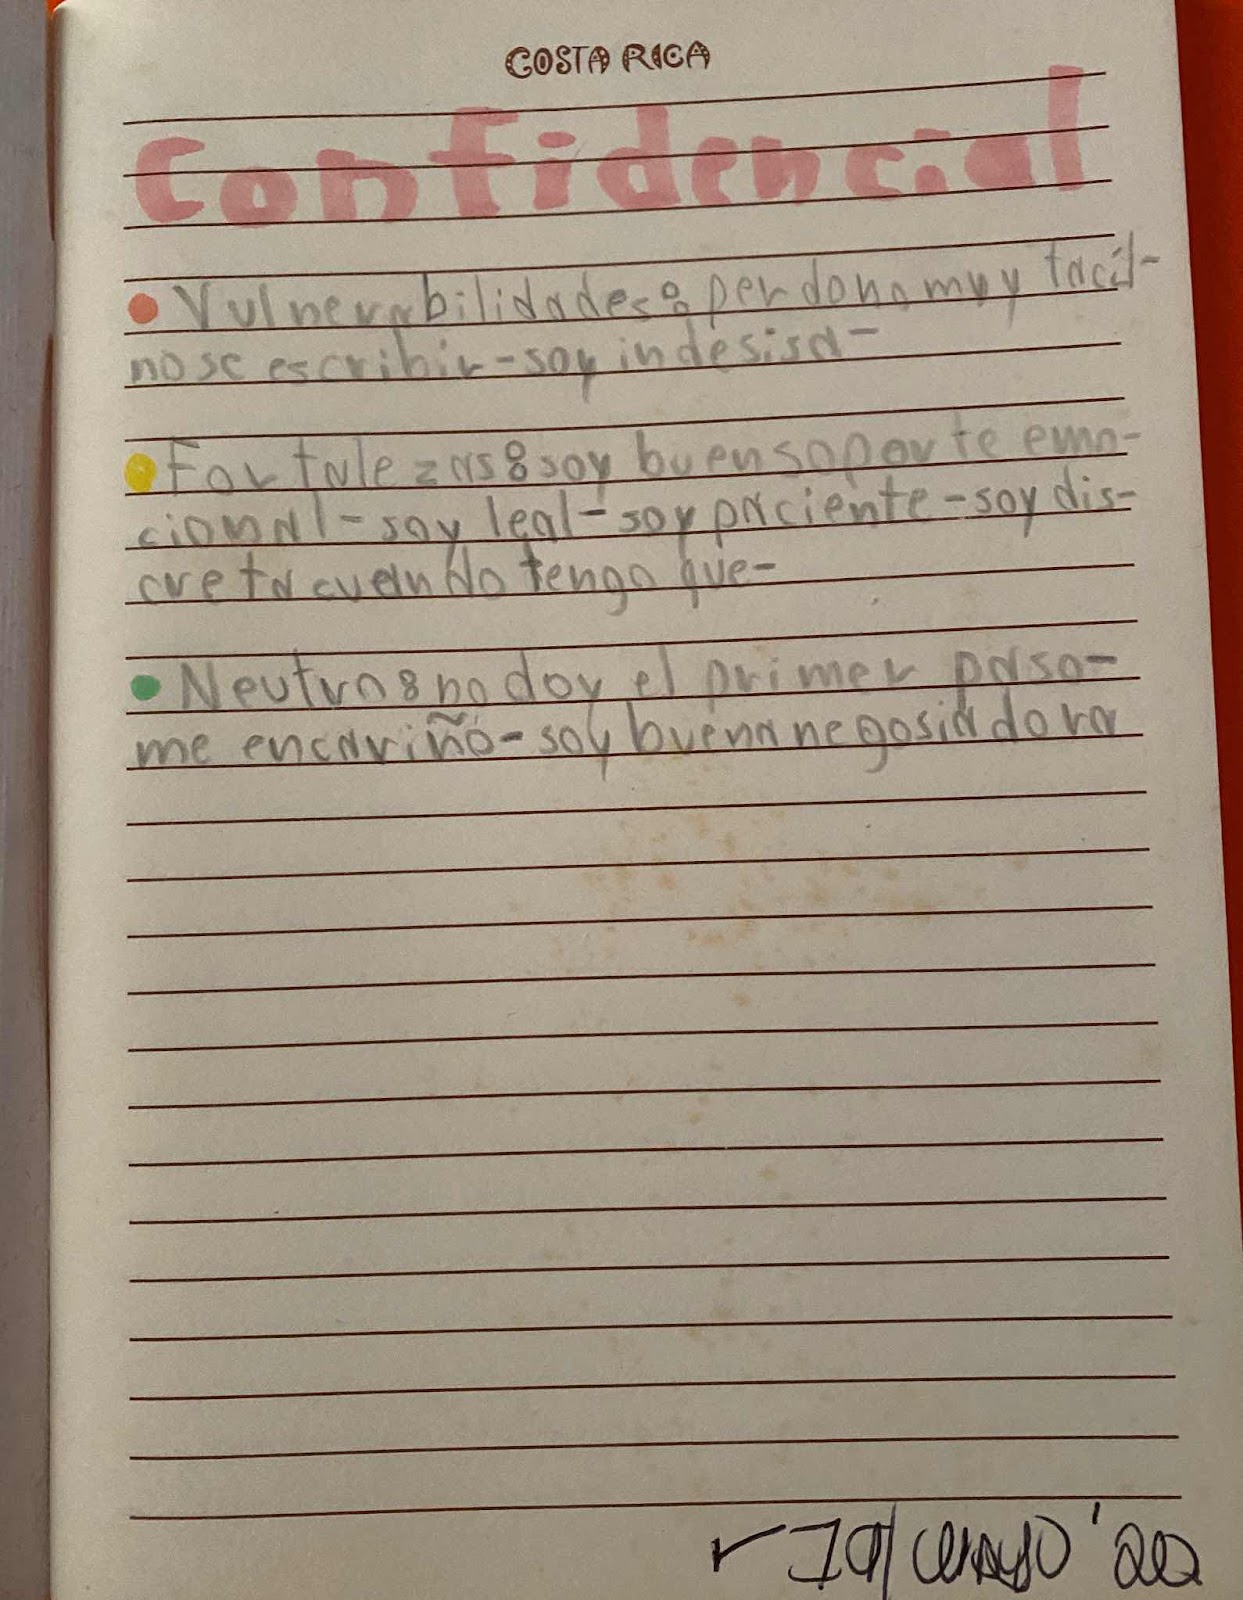 COSTA RICA
Confidencial
Vulnerabilidades: perdono muy facil-
no se escribir-soy indesisa-
Fortalezas: soy buen soporte emo-
cional-soy leal-soy paciente-soy dis-
creta cuando tengo que-
Neutro: no doy el primer paso-
me encariño-soy buena negosiadora
19/ '22